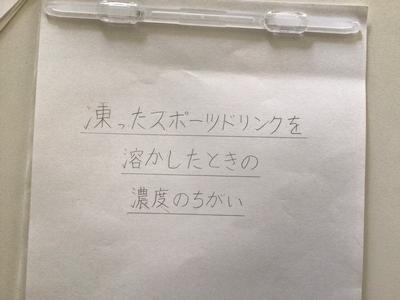 凍ったスポーツドリンクを
溶かしたときの
濃度のちがい